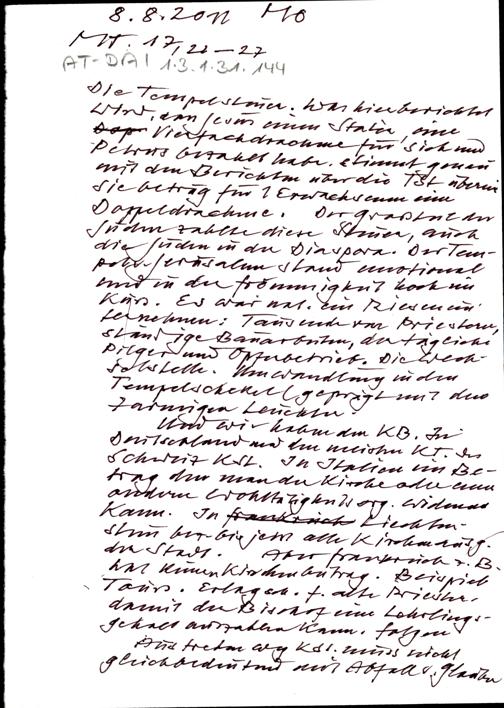 8.8.2011 MO
MT. 17, 22–27
AT-DAI 1.3.1.31.144
Die Tempelsteuer. Was hier berichtet
wird, dass Jesus einen Stater, eine
Vierfachdrachme für sich und
Petrus bezahlt habe, stimmt genau
mit den Berichten über die TSt überein
Sie betrug für 1 Erwachsenen eine
Doppeldrachme. Der Grossteil der
Juden zahlte diese Steuer, auch
die Juden in der Diaspora. Der Tem-
pel Jerusalem stand emotional
und in der Frömmigkeit hoch im
Kurs. Es war nat. ein Riesenun-
ternehmen: Tausende von Priestern,
ständige Bauarbeiten, der tägliche
Pilger und Opferbetrieb. Die Wech-
selstelle. Umwandlung in den
Tempelschekel (geprägt mit dem
7armigen Leuchter.
Und wir haben den KB. In
Deutschland und den meisten KT. der
Schweiz KSt. In Italien ein Be-
trag den man der Kirche oder einer
anderen Wohltätigkeitsorg. widmen
kann. In Frankreich Liechten-
stein bisjetzt alle Kirchenausg.
der Staat. Aber Frankreich z. B.
hat keinen Kirchenbeitrag. Beispiel
Tours. f. alte Priester
damit der Bischof eine Lehrlings-
gehalt auszahlen kann. Folgen
Austreten weg KSt. muss nicht
gleichbedeutend mit Abfall v. Glauben